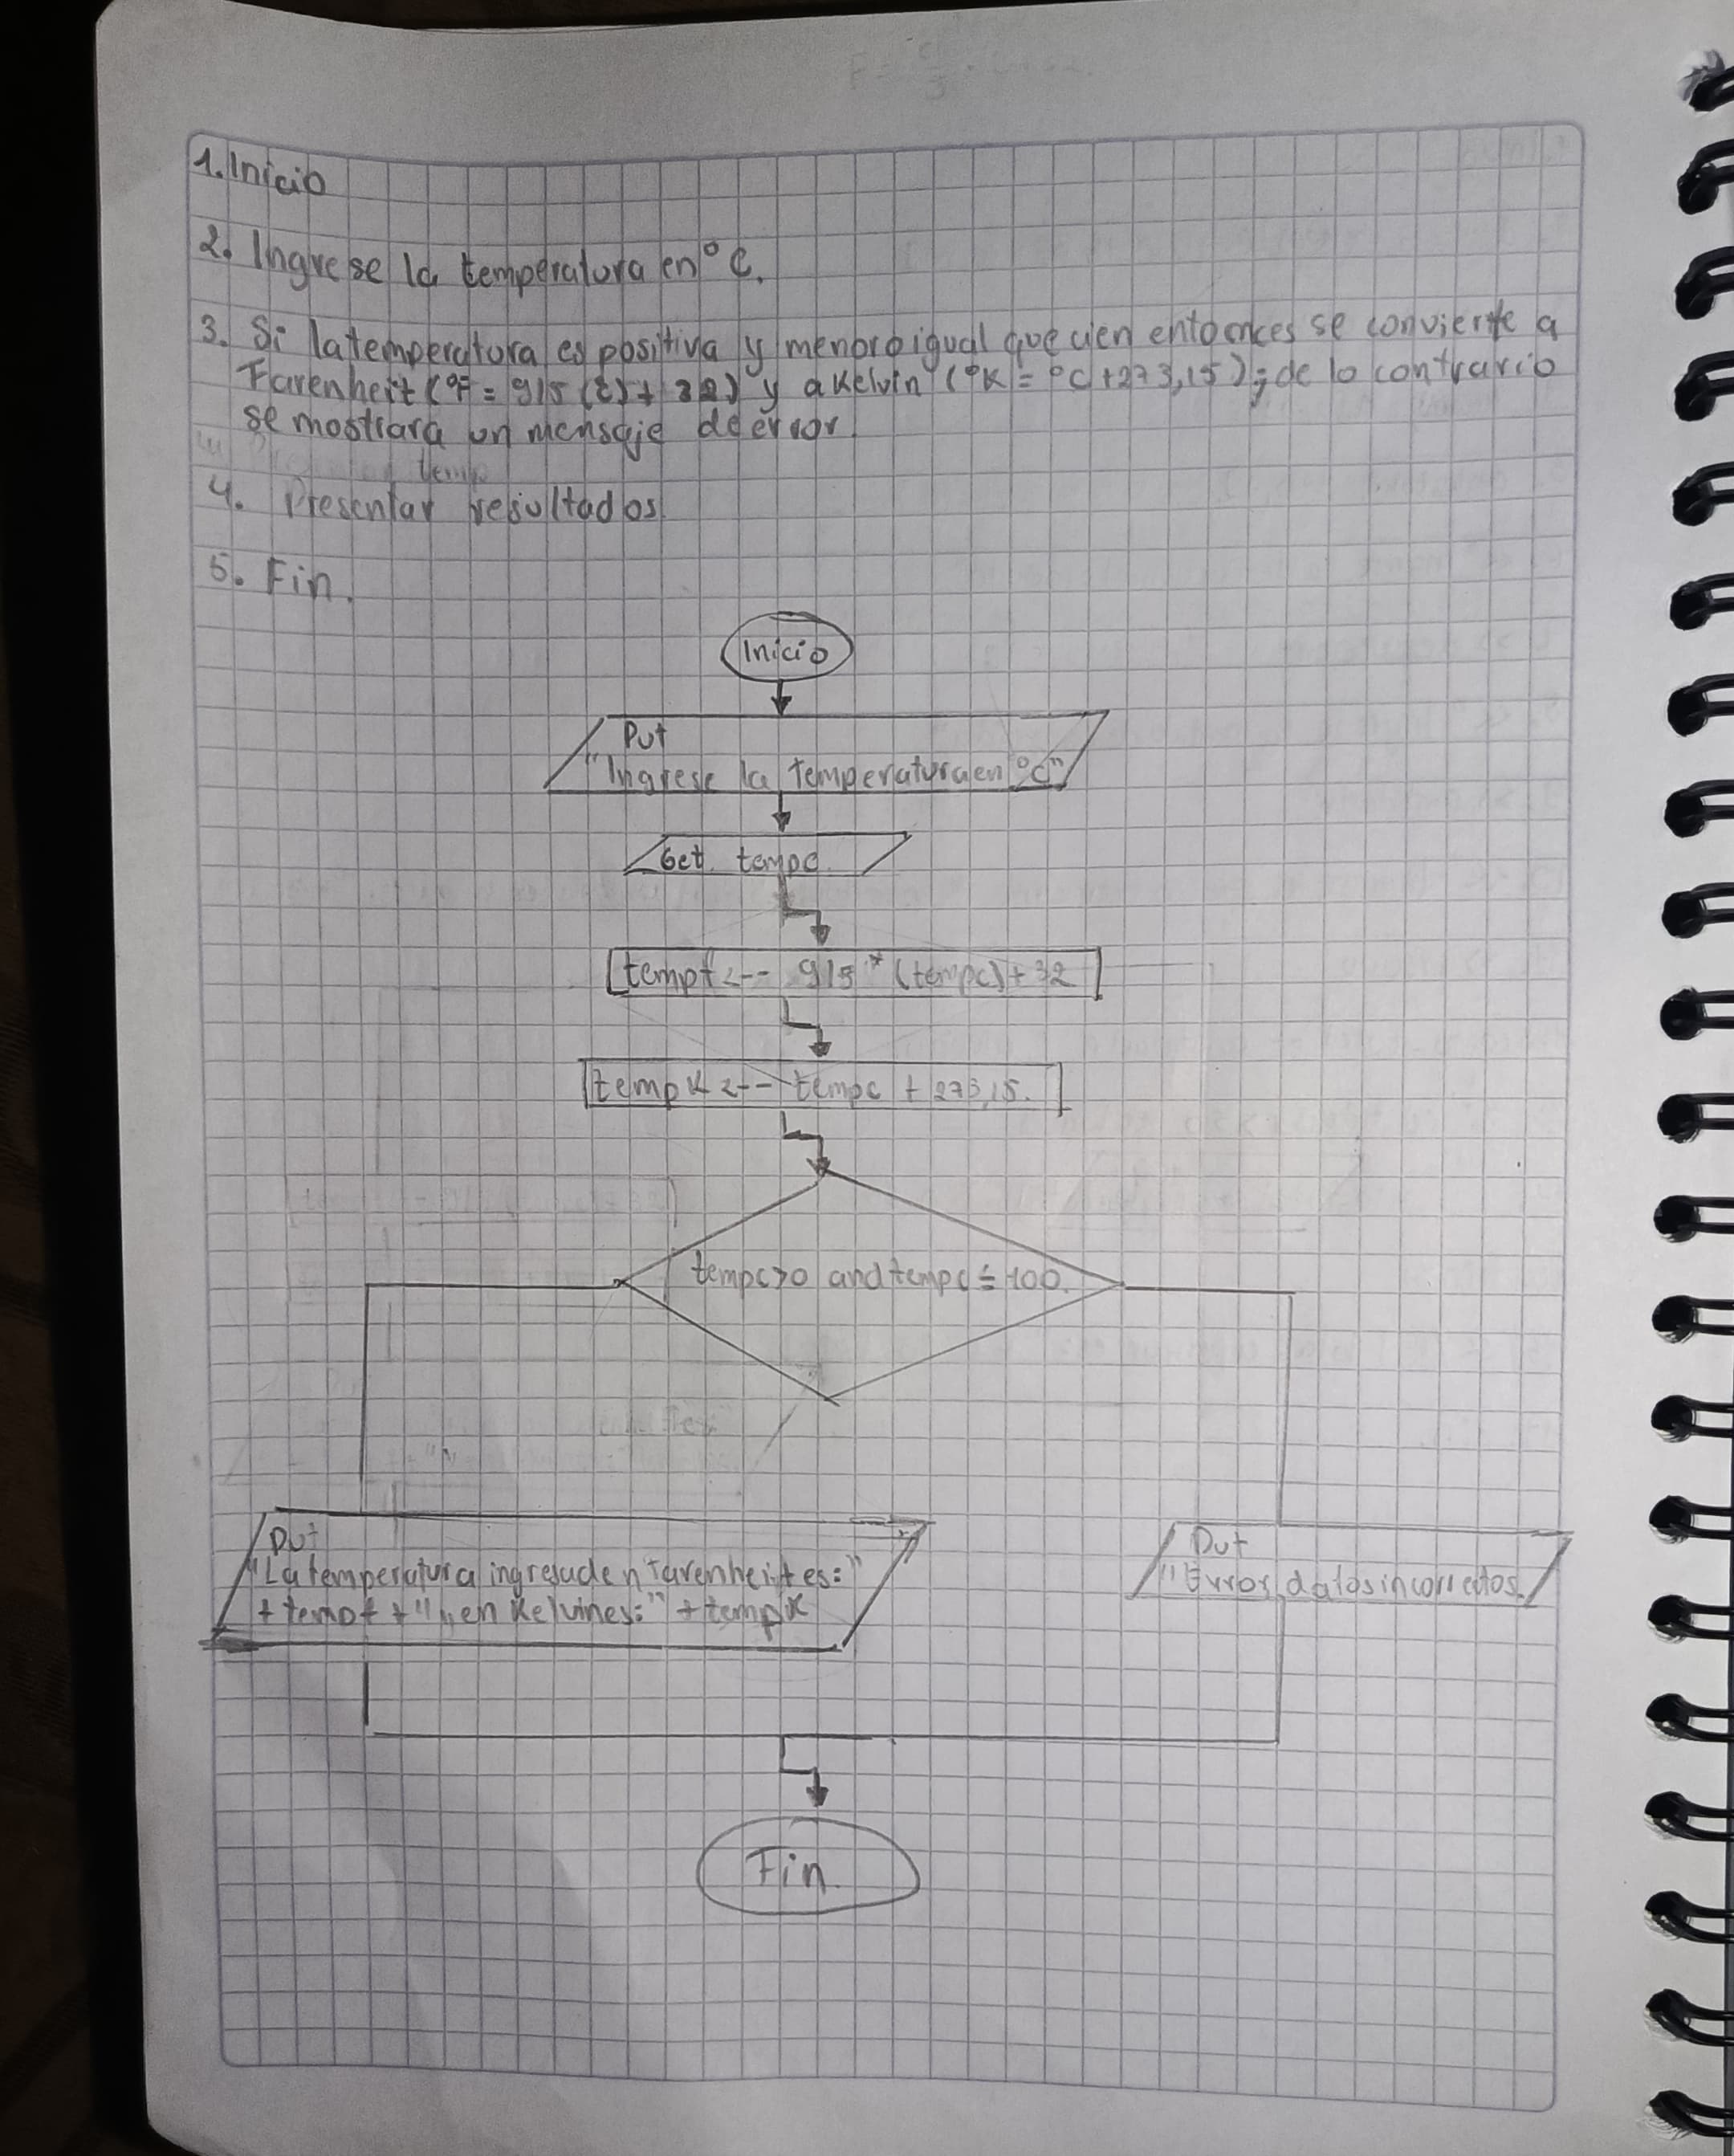 1. Inicio
2. Ingrese la temperatura en °C.
3. Si la temperatura es positiva y menor o igual que cien entonces se convierte a
Farenheit (°F = 9/5 (C) + 32) y a Kelvin (°K = °C + 273,15); de lo contrario
se mostrara un mensaje de error.
4. Presentar resultados
5. Fin.
Inicio
Put
"Ingrese la temperatura en °C"
Get tempc
tempf <-- 9/5 * (tempc) + 32
tempK <-- tempc + 273,15.
tempc>0 and tempc ≤ 100.
Put
"La temperatura ingresada en Farenheit es:"
+ tempf + " ,, en Kelvines:" + tempK
Put
"Error, datos incorrectos.
Fin.